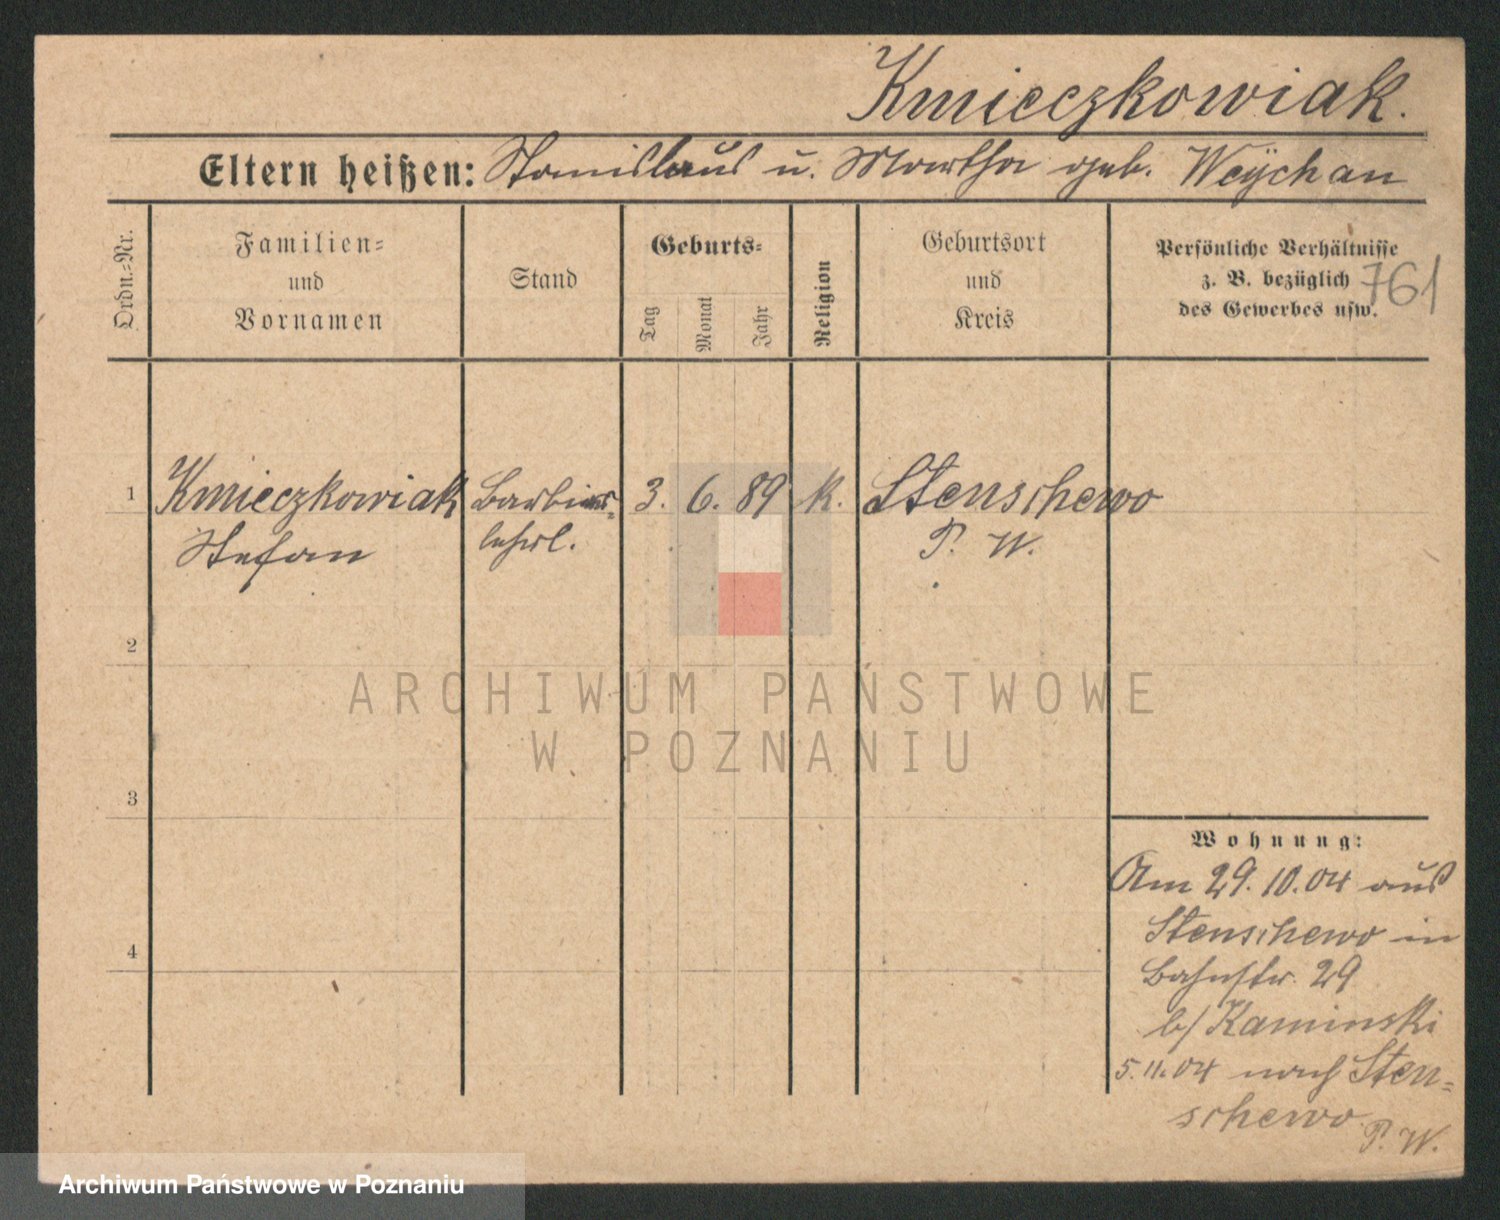 Kmieczkowiak.
Eltern heißen: Stanislaus u. Martha geb. Weÿchan
Ordn.=Nr.
Familien=
und
Vornamen
Stand
Geburts=
Tag
Monat
Jahr
Religion
Geburtsort
und
Kreis
Persönliche Verhältnisse
z. B. bezüglich
des Gewerbes usw.
761
1 Kmieczkowiak Barbier= 3. 6. 89 k. Stenschewo
Stefan lehrl. P. W.
2
ARCHIWUM PAŃSTWOWE
W POZNANIU
3
Wohnung:
Am 29.10.04 aus
Stenschewo in
Bahnstr. 29
b/ Kaminski
5.11.04 nach Sten=
schewo P. W.
4
Archiwum Państwowe w Poznaniu